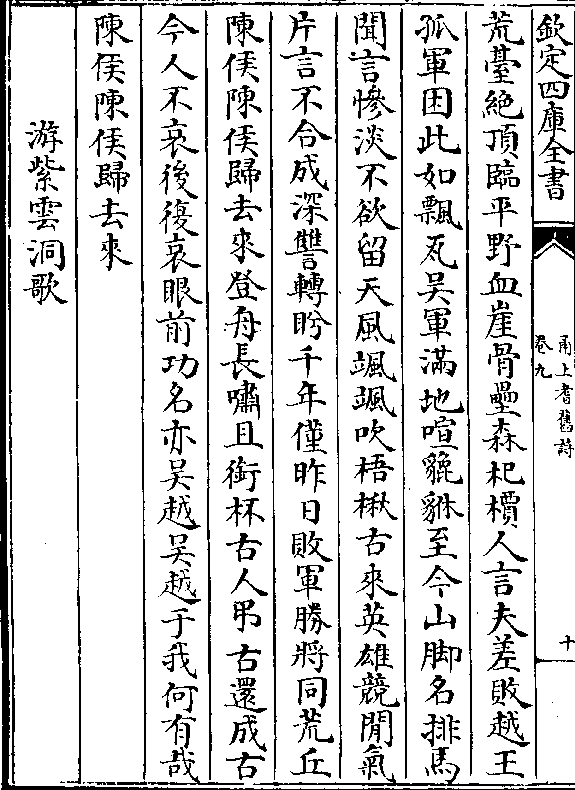 欽定四庫全書
甬上耆舊詩
卷九
十
荒臺絶頂臨平野血崖骨壘森杞檟人言夫差敗越王
孤軍困此如飄瓦吴軍滿地喧貔貅至今山脚名排馬
聞言慘淡不欲留天風颯颯吹梧楸古來英雄競閒氣
片言不合成深讐轉盼千年僅昨日敗軍勝將同荒丘
陳侯陳侯歸去來登舟長嘯且銜杯古人弔古還成古
今人不哀後復哀眼前功名亦吴越吴越于我何有哉
陳侯陳侯歸去來
游紫雲洞歌